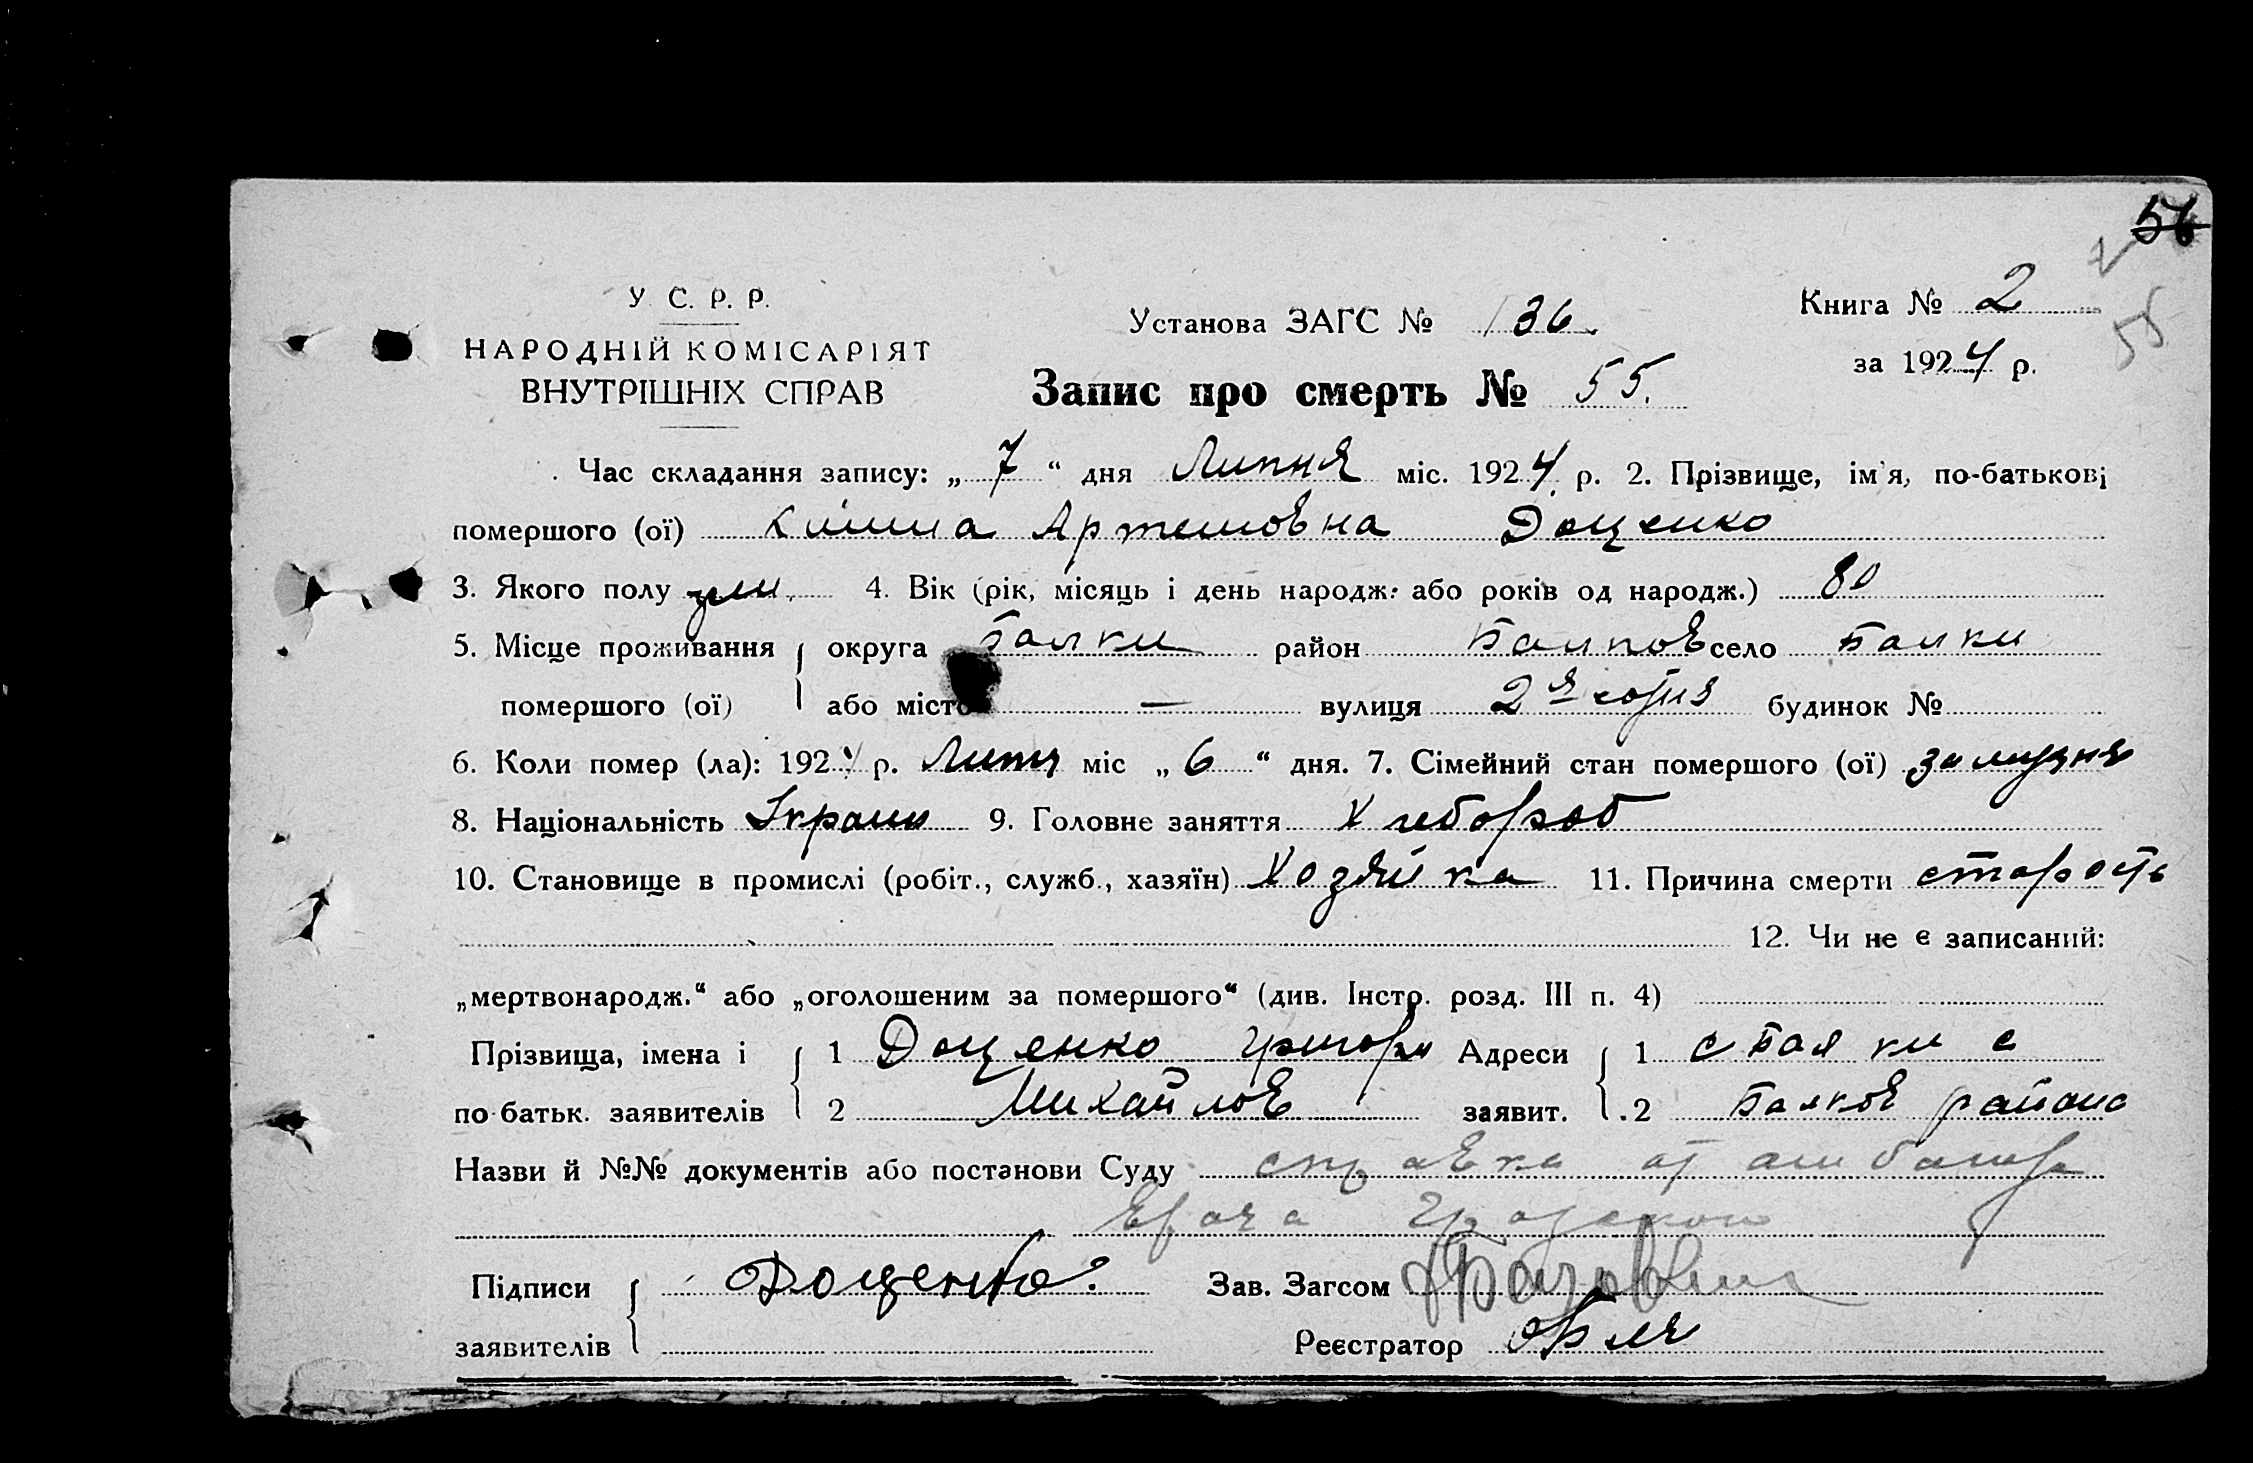 56
У. С. Р. Р.
НАРОДНІЙ КОМІСАРІЯТ
ВНУТРІШНІХ СПРАВ
Установа ЗАГС № 136.
Книга № 2
за 1924 р.
55
Запис про смерть № 55.
Час складання запису: „7“ дня Липня міс. 1924 р. 2. Прізвище, ім'я, по-батькові
помершого (ої) Артемовна Доценко
3. Якого полу 4. Вік (рік, місяць і день народж. або років од народж.) 80
5. Місце проживання округа Балки район Балков село Балки
помершого (ої) або місто — вулиця 2я сотня будинок №
6. Коли помер (ла): 1924 р. міс „6“ дня. 7. Сімейний стан помершого (ої)
8. Національність 9. Головне заняття Хлебороб
10. Становище в промислі (робіт., служб., хазяїн) Хозяйка 11. Причина смерти старость
12. Чи не є записаний:
„мертвонародж.“ або „оголошеним за помершого“ (див. Інстр. розд. III п. 4)
Прізвища, імена і 1 Доценко Григори Адреси 1 с Балки с
по-батьк. заявителів 2 Михайлов заявит. 2 Балков района
Назви й №№ документів або постанови Суду справка от
врача
Підписи Доценко. Зав. Загсом
заявителів Реєстратор